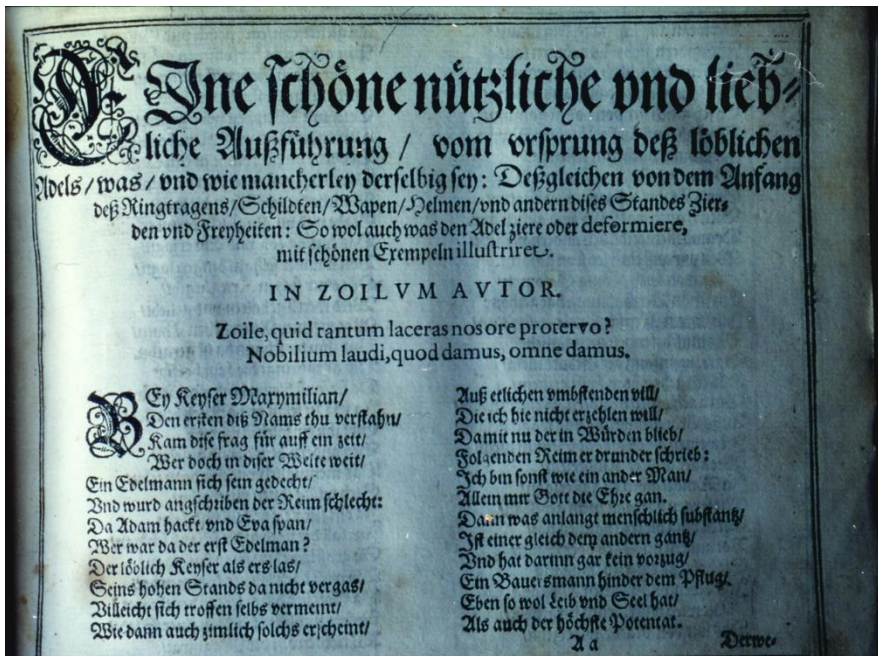 Eine schöne nützliche vnd lieb-
liche Außführung / vom vrsprung deß löblichen
Adels / was / vnd wie mancherley derselbig sey: Deßgleichen von dem Anfang
deß Ringtragens/Schildten/Wapen/Helmen/vnd andern dises Standes Zier-
den vnd Freyheiten: So wol auch was den Adel ziere oder deformiere,
mit schönen Exempeln illustriret.
IN ZOILVM AVTOR.
Zoile, quid tantum laceras nos ore protervo?
Nobilium laudi, quod damus, omne damus.
BEy Keyser Maxymilian/
Den ersten diß Nams thu verstahn/
Kam dise frag für auff ein zeit/
Wer doch in diser Welte weit/
Ein Edelmann sich sein gedecht/
Vnd wurd angschriben der Reim schlecht:
Da Adam hackt vnd Eva span/
Wer war da der erst Edelman?
Der löblich Keyser als ers las/
Seins hohen Stands da nicht vergas/
Villeicht sich troffen selbs vermeint/
Wie dann auch zimlich solchs erscheint/
Auß etlichen vmbstenden vill/
Die ich hie nicht erzehlen will/
Damit nu der in Würden blieb/
Folgenden Reim er drunder schrieb:
Ich bin sonst wie ein ander Man/
Allein mir Gott die Ehre gan.
Dann was anlangt menschlich substantz/
Ist einer gleich dem andern gantz/
Vnd hat darinn gar kein vorzug/
Ein Bauersmann hinder dem Pflug/
Eben so wol Leib vnd Seel hat/
Als auch der höchste Potentat.
A a Derwe-